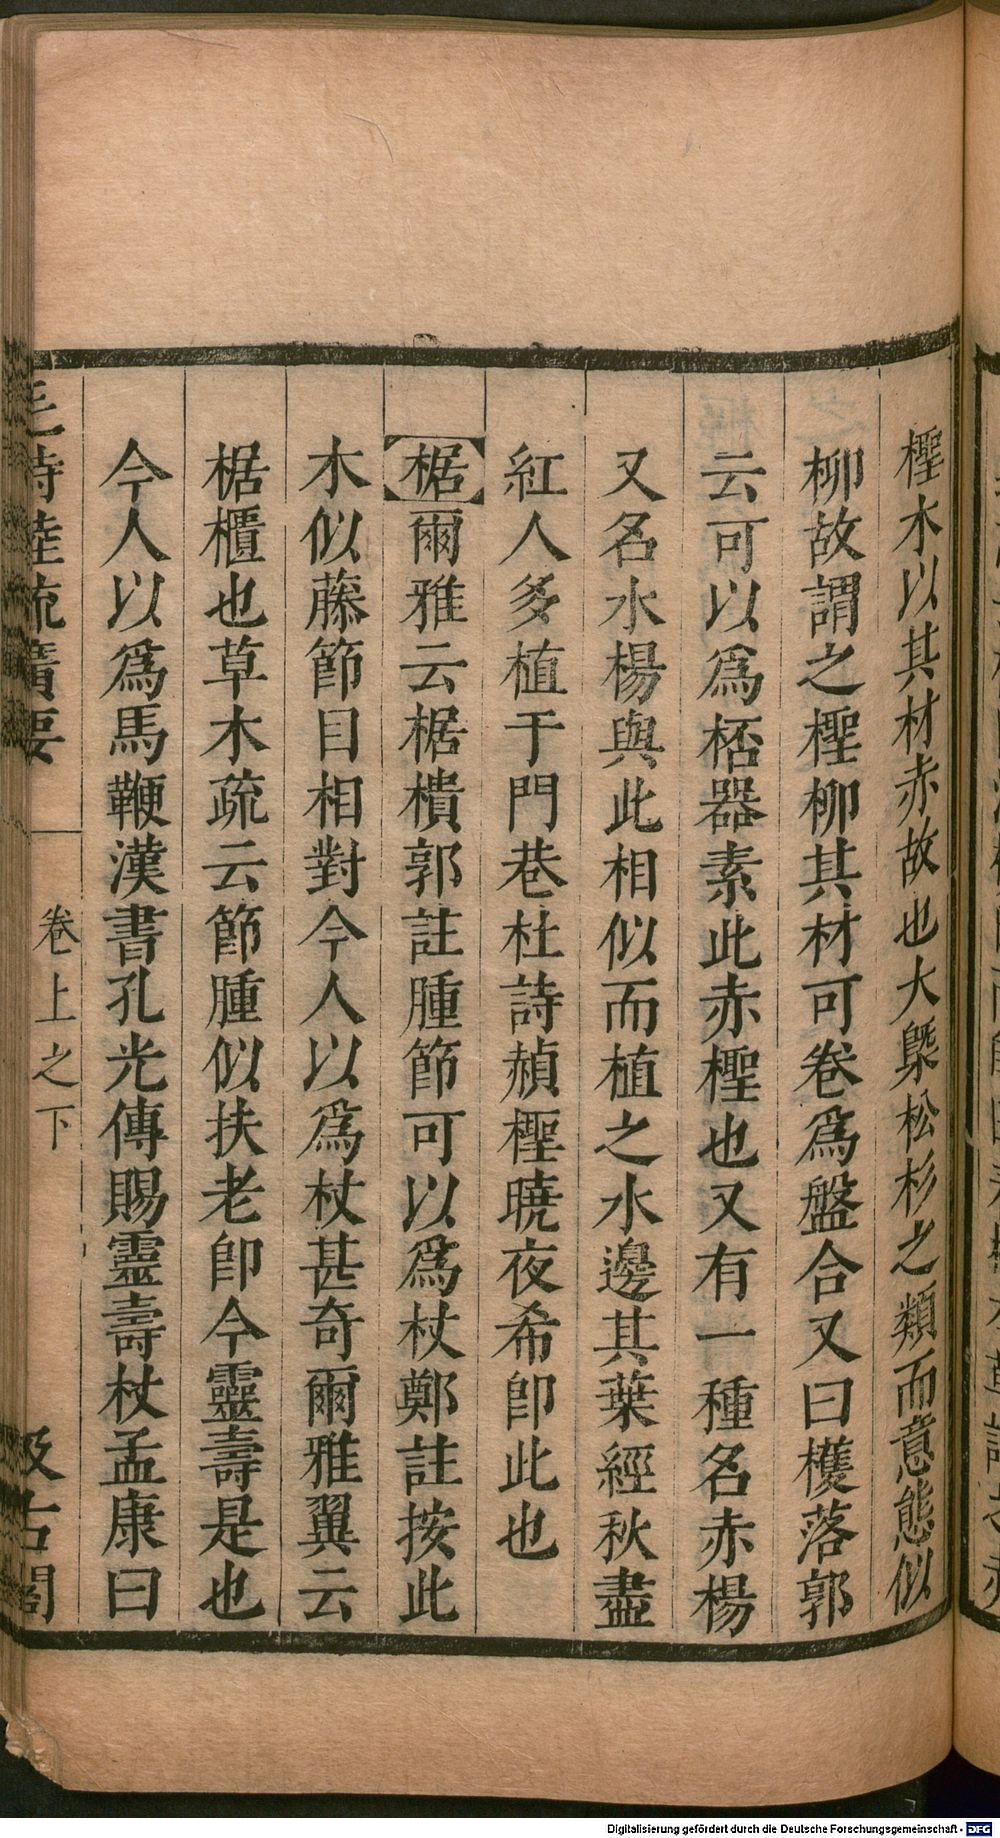 檉木以其材赤故也大槩松杉之類而意態似
柳故謂之檉柳其材可卷爲盤合又曰檴落郭
云可以爲桮器素此赤檉也又有一種名赤楊
又名水楊與此相似而植之水邊其葉經秋盡
紅人多植于門巷杜詩赬檉曉夜希卽此也
椐爾雅云椐樻郭註腫節可以爲杖鄭註按此
木似藤節目相對今人以爲杖甚奇爾雅翼云
椐櫃也草木疏云節腫似扶老卽今靈壽是也
今人以爲馬鞭漢書孔光傳賜靈壽杖孟康曰
毛詩陸疏廣要
卷上之下
汲古閣
Digitalisierung gefördert durch die Deutsche Forschungsgemeinschaft - DFG